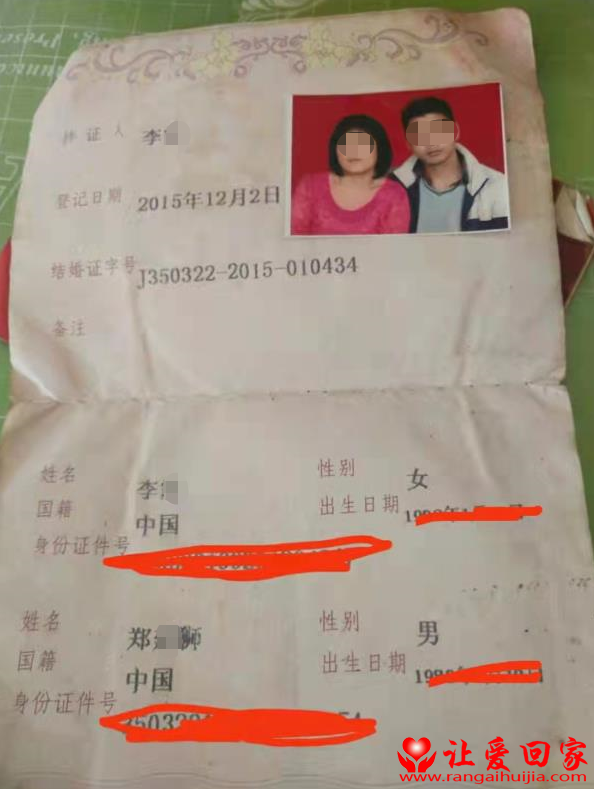 持证人 李
登记日期 2015年12月2日
结婚证字号 J350322-2015-010434
备注
姓名 李 性别 女
国籍 中国 出生日期
身份证件号
姓名 郑 狮 性别 男
国籍 中国 出生日期
身份证件号
让爱回家
www.rangaihuijia.com